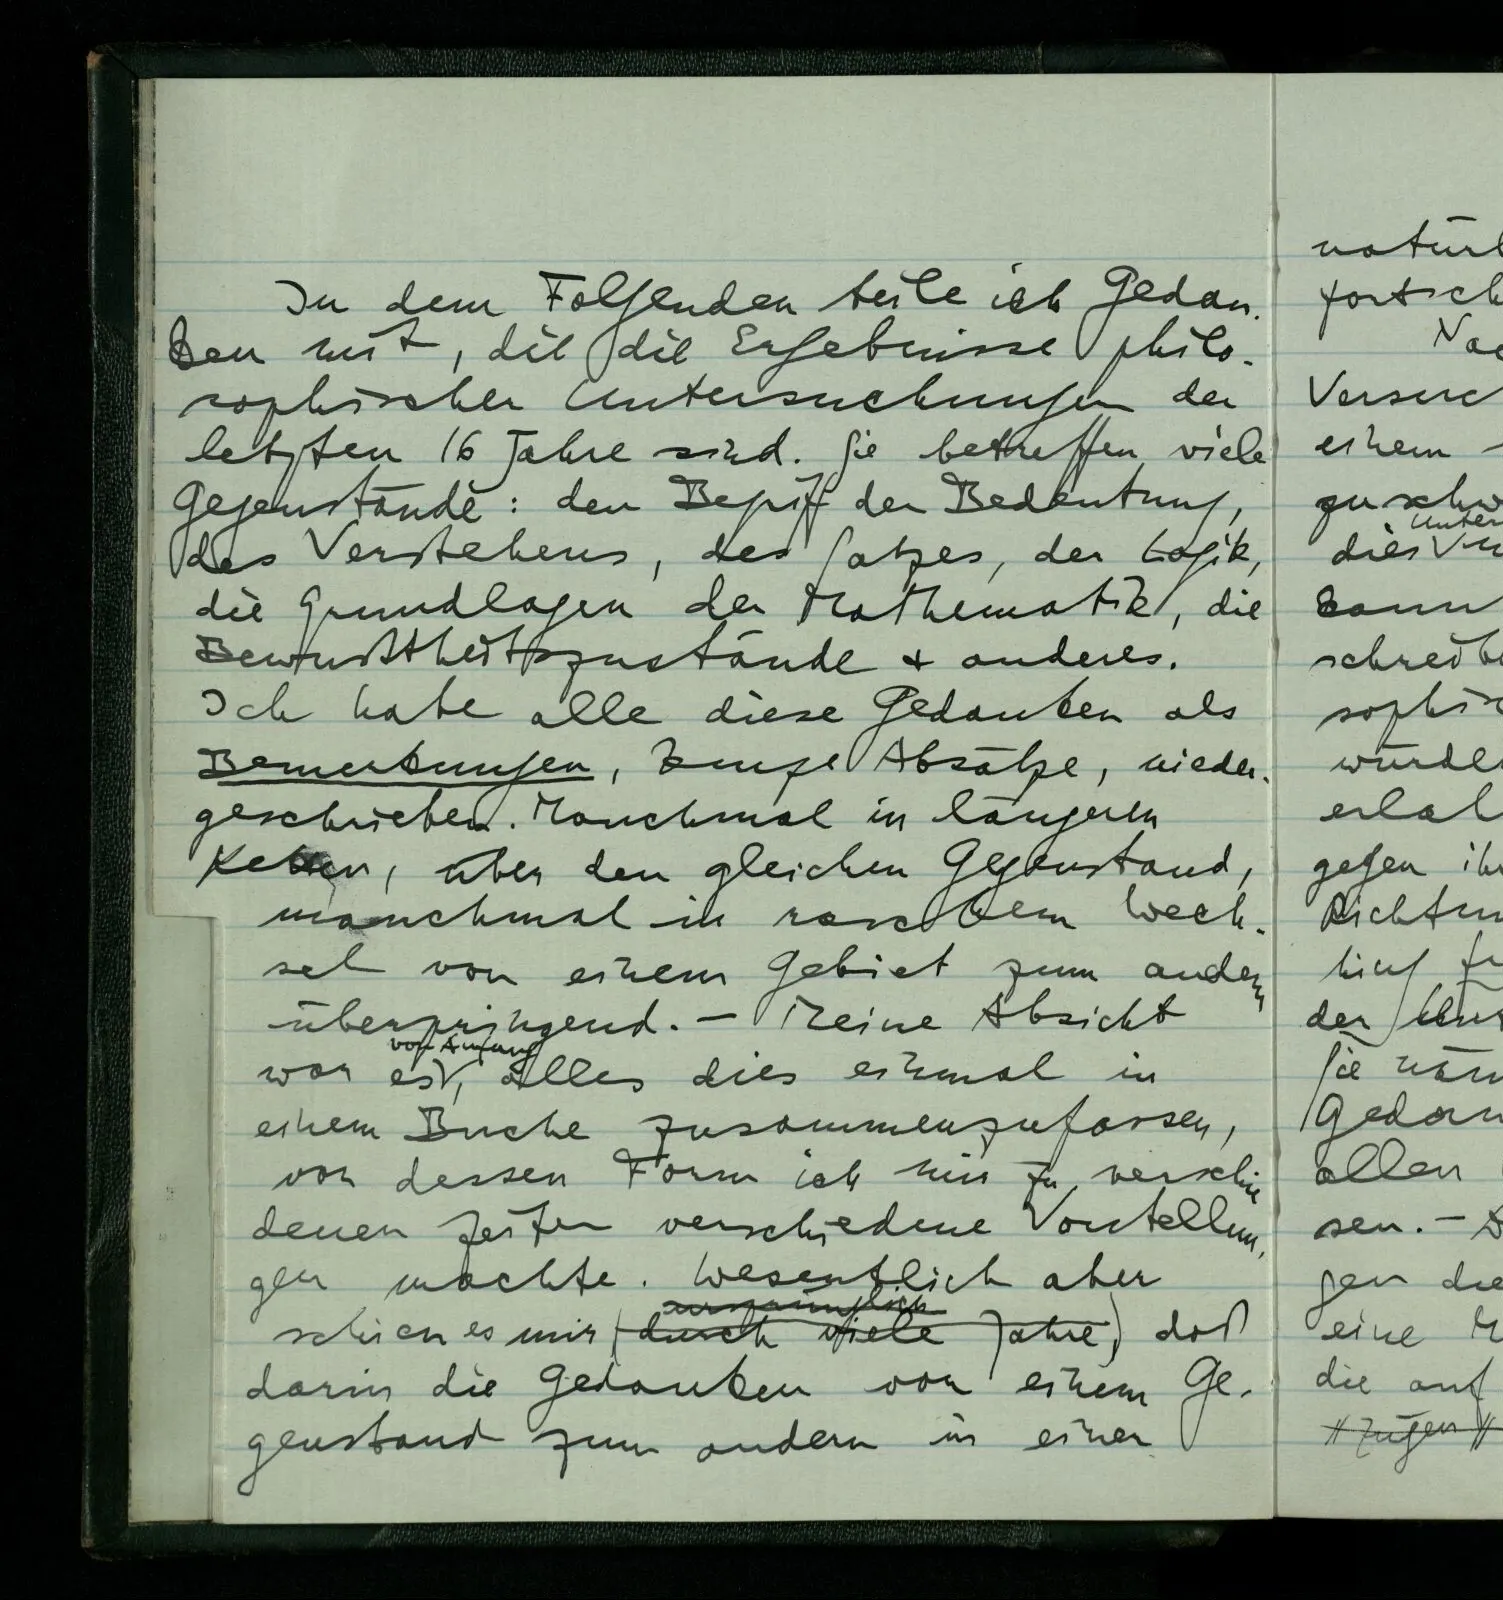 In dem Folgenden teile ich Gedan-
ken mit, die die Ergebnisse philo-
sophischer Untersuchungen der
letzten 16 Jahre sind. Sie betreffen viele
Gegenstände: den Begriff der Bedeutung,
des Verstehens, des Satzes, der Logik,
die Grundlagen der Mathematik, die
Bewußtheitszustände & anderes.
Ich habe alle diese Gedanken als
Bemerkungen, kurze Absätze, nieder-
geschrieben. Manchmal in längeren
Ketten, über den gleichen Gegenstand,
manchmal in raschem Wech-
sel von einem Gebiet zum andern
überspringend. – Meine Absicht
von Anfang
war es, alles dies einmal in
einem Buche zusammenzufassen,
von dessen Form ich mir zu verschie
denen Zeiten verschiedene Vorstellun-
gen machte. Wesentlich aber
ursprünglich
schien es mir (durch viele Jahre) daß
darin die Gedanken von einem Ge-
genstand zum andern in einer
natürl
fortsch
Nac
Versuc
einem
zuschw
Unter
dies
kann
schreibe
sophis
würde
erlah
gegen ih
Richtun
hing
der
Sie
Gedan
allen
sen. –
gen die
eine M
die auf
// Zügen //